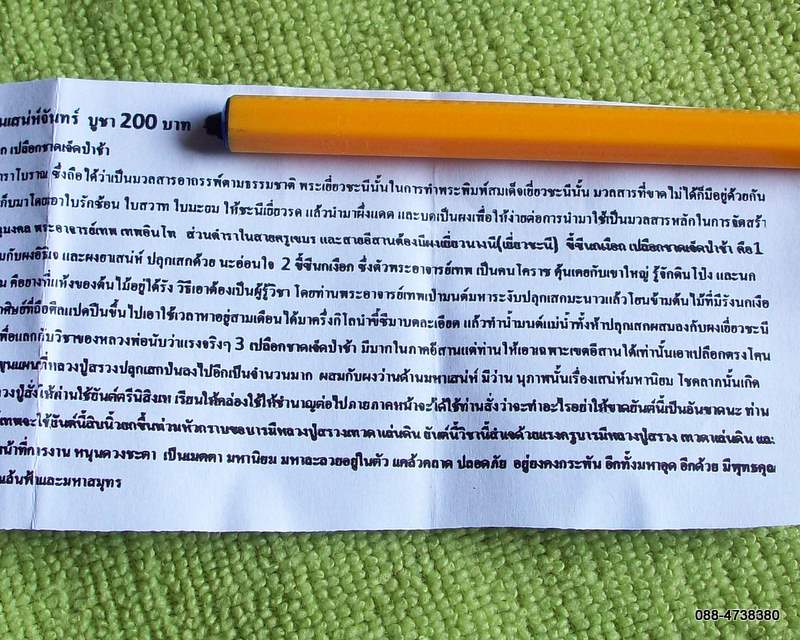 นเสน่ห์จันทร์ บูชา 200 บาท
ก เปลือกชาดเจ็ดป่าช้า
ราโบราณ ซึ่งถือได้ว่าเป็นมวลสารอาถรรพ์ตามธรรมชาติ พระเยี่ยวชะนีนั้นในการทำพระพิมพ์สมเด็จเยี่ยวชะนีนั้น มวลสารที่ขาดไม่ได้ก็มีอยู่ด้วยกัน
ก็บมาโดยเอาใบรักซ้อน ใบสวาท ใบมะยม ให้ชะนีเยี่ยวรด แล้วนำมาผึ่งแดด และบดเป็นผงเพื่อให้ง่ายต่อการนำมาใช้เป็นมวลสารหลักในการจัดสร้า
มงคล พระอาจารย์เทพ เทพอินโท ส่วนตำราในสายครูเขมร และสายอีสานต้องมีผงเยี่ยวนางนี(เยี่ยวชะนี) ขี้ซีนกเงือก เปลือกชาดเจ็ดป่าช้า คือ1
มกับผงอิธิเจ และผงยาเสน่ห์ ปลุกเสกด้วย นะอ่อนใจ 2 ขี้ซีนกเงือก ซึ่งตัวพระอาจารย์เทพ เป็นคนโคราช คุ้นเคยกับเขาใหญ่ รู้จักดินโป่ง และนก
ม คือยางที่แห้งของต้นไม้อยู่ใต้รัง วิธีเอาต้องเป็นผู้รู้วิชา โดยท่านพระอาจารย์เทพเป่ามนต์มหาระงับปลุกเสกมะนาวแล้วโยนข้ามต้นไม้ที่มีรังนกเงือ
กศิษย์ที่ถือศีลแปดปีนขึ้นไปเอาใช้เวลาหาอยู่สามเดือนได้มาครึ่งกิโลนำขี้ซีมาบดละเอียด แล้วทำน้ำมนต์แม่น้ำทั้งห้าปลุกเสกผสมลงกับผงเยี่ยวชะนี
พื่อแลกกับวิชาของหลวงพ่อนับว่าแรงจริงๆ 3 เปลือกชาดเจ็ดป่าช้า มีมากในภาคอีสานแต่ท่านให้เอาเฉพาะเขตอีสานใต้เท่านั้นเอาเปลือกตรงโคน
ขุนแผนที่หลวงปู่สรวงปลุกเสกป่นลงไปอีกเป็นจำนวนมาก ผสมกับผงว่านด้านมหาเสน่ห์ มีว่าน นุภาพนั้นเรื่องเสน่ห์มหานิยม โชคลาภนั้นเกิด
ลวงปู่สั่งให้ท่านใช้ยันต์ตรีนิสิงเห เรียนให้คล่องใช้ให้ชำนาญต่อไปภายภาคหน้าจะได้ใช้ท่านสั่งว่าจะทำอะไรอย่าให้ขาดยันต์นี้เป็นอันขาดนะ ท่าน
เทพจะใช้ยันต์นี้สิบนิ้วยกขึ้นท่วมหัวกราบขอบารมีหลวงปู่สรวงเทวดาเล่นดิน ยันต์นี้วิชานี้สำเจด้วยแรงครูบารมีหลวงปู่สรวง เทวดาเล่นดิน และ
หน้าที่การงาน หนุนดวงชะตา เป็นเมตตา มหานิยม มหาละลวยอยู่ในตัว แคล้วคลาด ปลอดภัย อยู่ยงคงกระพัน อีกทั้งมหาอุด อีกด้วย มีพุทธคุณ
ล้นฟ้าและมหาสมุทร
088-4738380